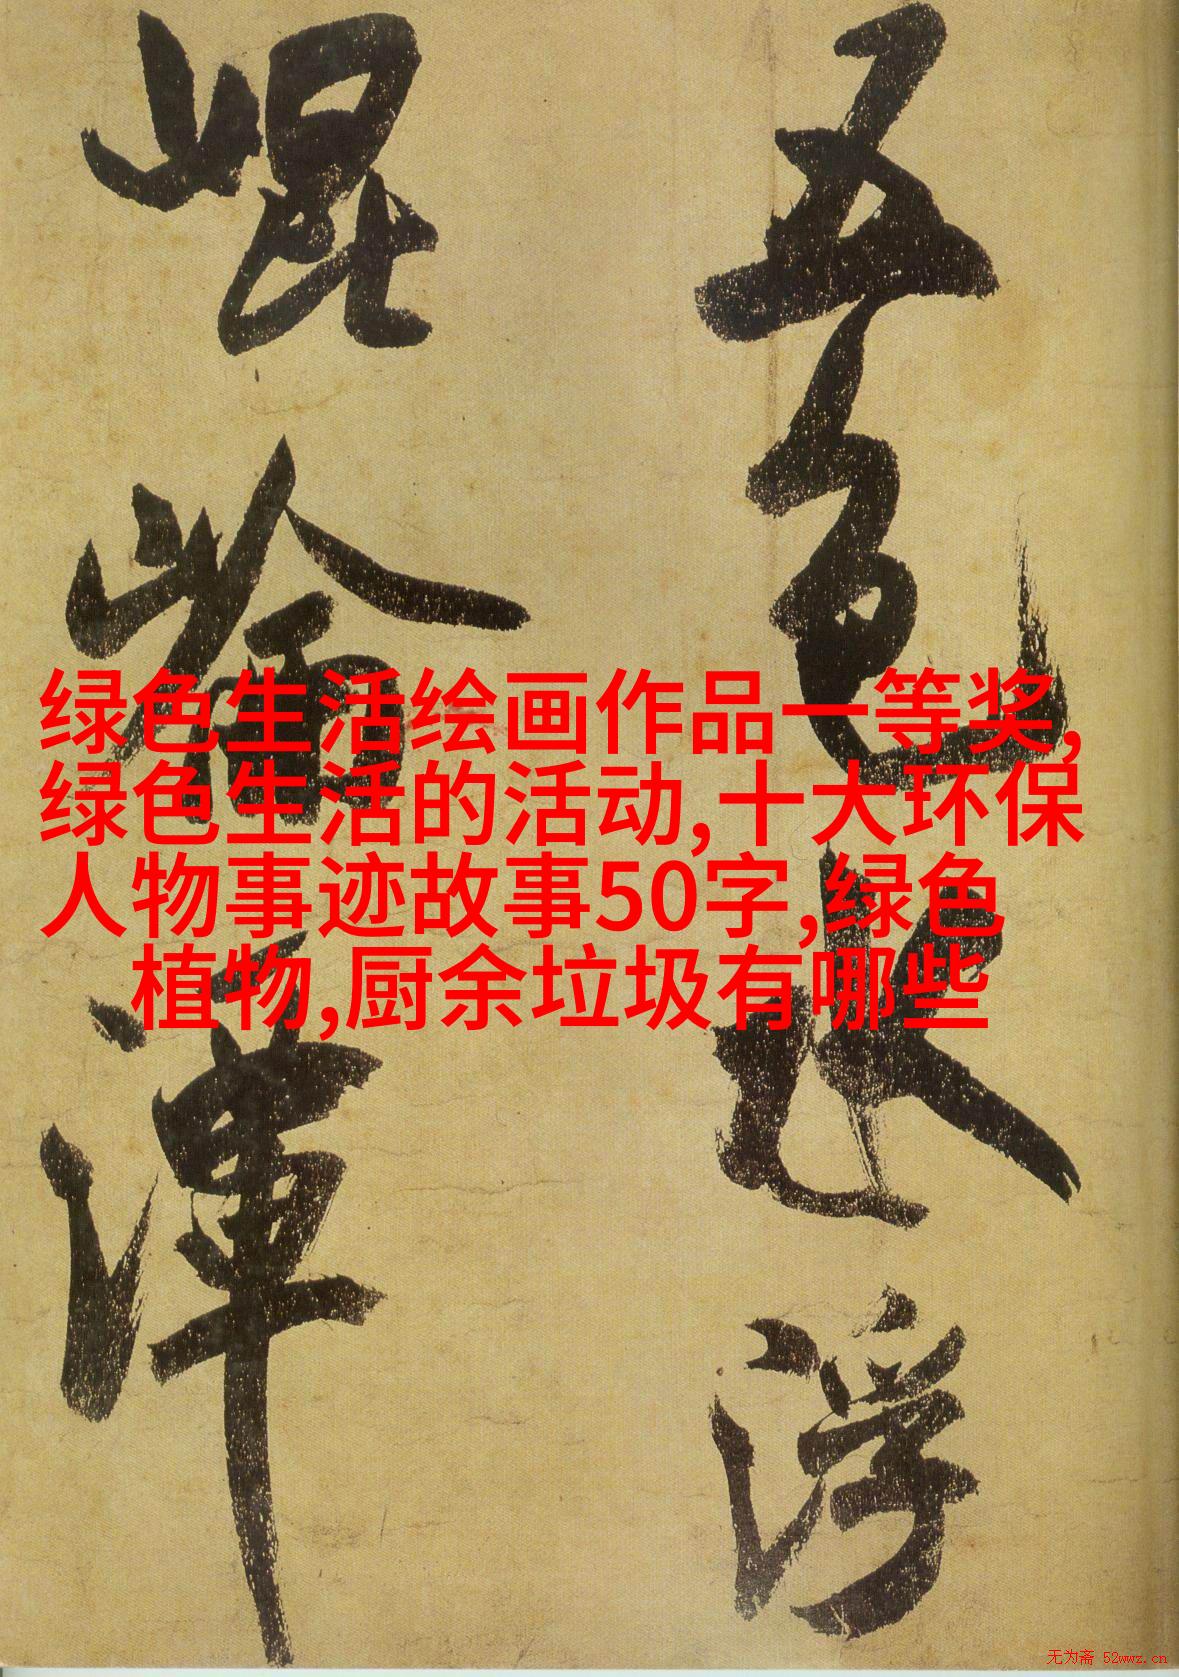 五色水浮
崐崘渾
绿色生活绘画作品一等奖,
绿色生活的活动,十大环保
人物事迹故事50字,绿色
植物,厨余垃圾有哪些
无为斋 52wwz.cn